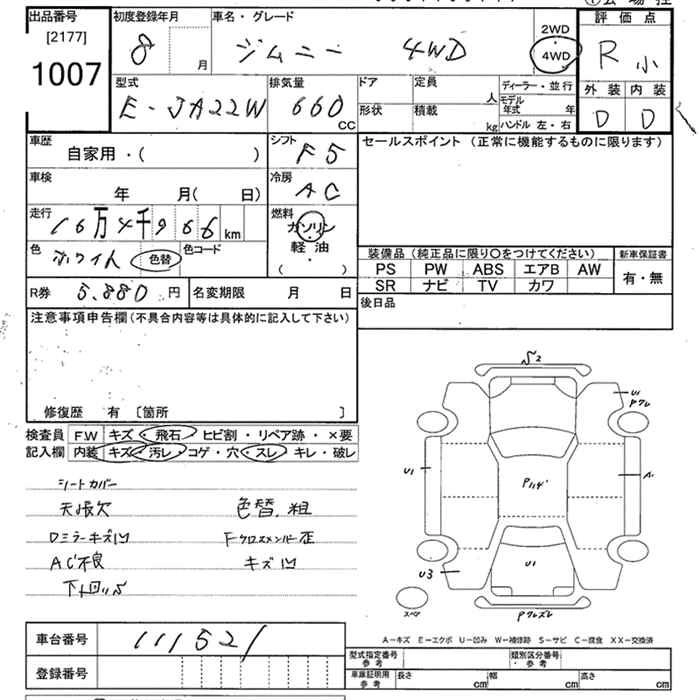 出品番号
[2177]
1007
初度登録年月
8 月
車名・グレード
ジムニー 4WD
2WD
4WD
評価点
R 小
外装 内装
D D
型式
E-JA22W
排気量
660
CC
ドア
定員
人
形状
積載
kg
ディーラー・並行
モデル年式 年
ハンドル 左・右
車歴
自家用・( )
シフト
F5
車検
年 月( 日)
冷房
AC
走行
16万4千966 km
燃料
ガソリン
軽油
( )
色
ホワイト
色替
色コード
セールスポイント (正常に機能するものに限ります)
装備品 (純正品に限り○をつけてください)
新車保証書
PS PW ABS エアB AW
SR ナビ TV カワ
有・無
R券 5.880 円
名変期限 月 日
後日品
注意事項申告欄 (不具合内容等は具体的に記入して下さい)
修復歴 有 〔箇所 〕
検査員 F.W キズ・飛石・ヒビ割・リペア跡・×要
記入欄 内装 キズ・汚レ・コゲ・穴・スレ・キレ・破レ
シートカバー
天張欠
色替.粗
Dミラーキズ凹
Fクロスメンバー歪
AC不良
キズ凹
下回りS
S2
U1
Pクレ
U1
P114
A
U1
U3
スペア
Pクレズレ
A-キズ E-エクボ U-凹み W-補修跡 S-サビ C-腐食 XX-交換済
車台番号
111521
登録番号
型式指定番号 参考
類別区分番号 参考
車庫証明用 参考
長さ cm 幅 cm 高さ cm